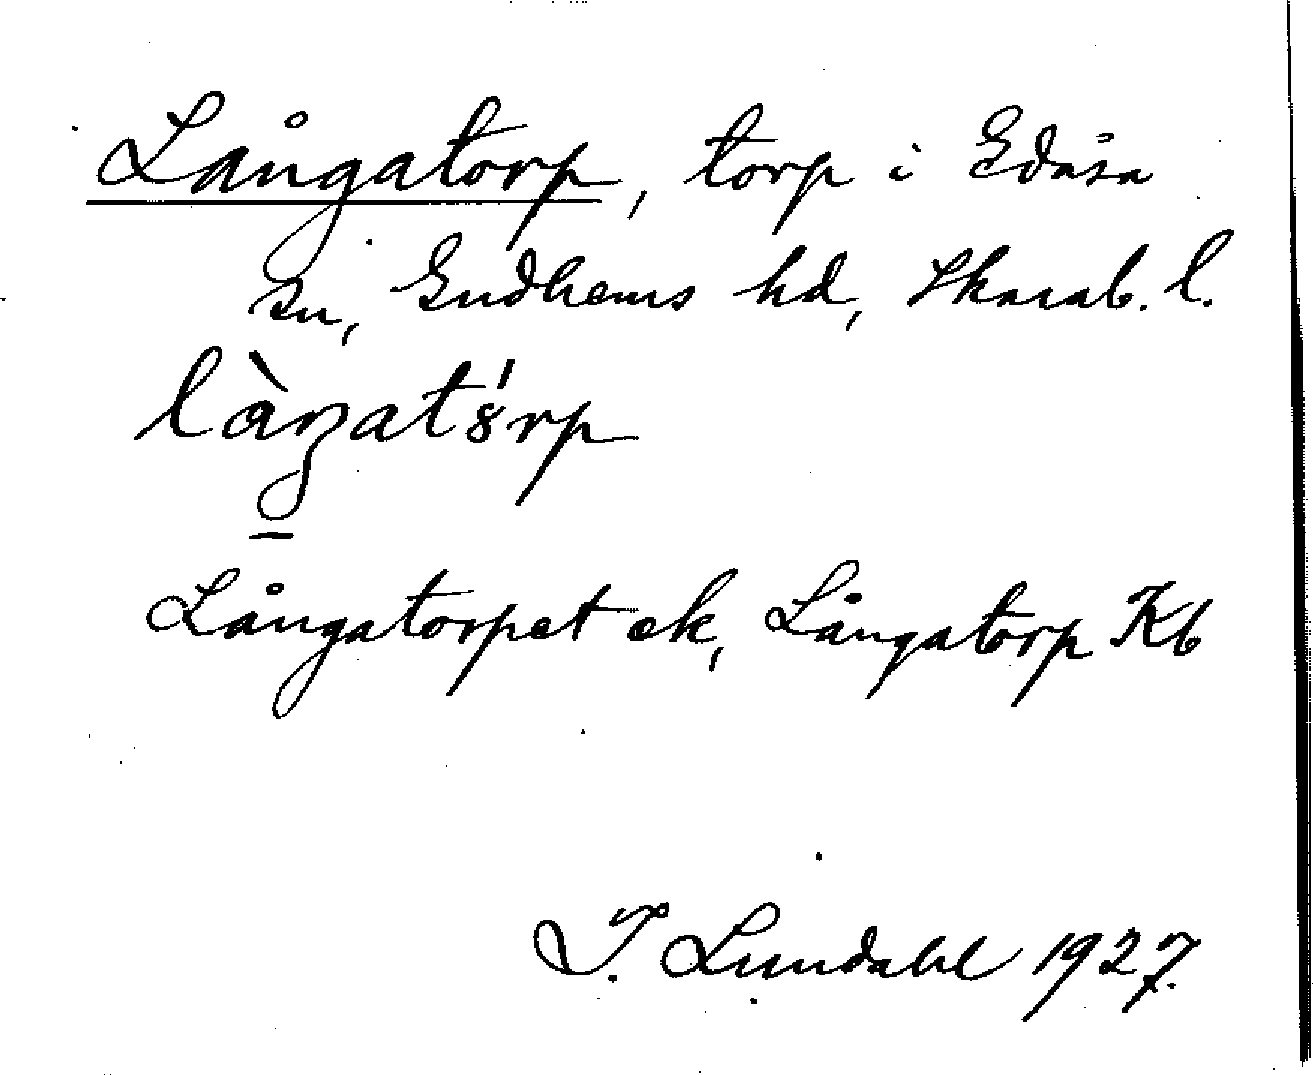 Långatorp, torp i Edåsa
sn, Gudhems hd, Skarab. l.
làŋat8́rp
Långatorpet ek, Långatorp Kb
I. Lundahl 1927.